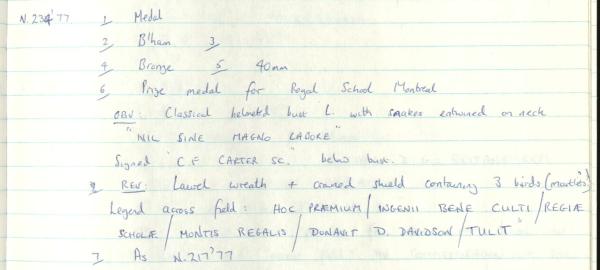 N.234'77 1 Medal
2 B'ham 3
4 Bronze 5 40mm
6 Prize medal for Royal School Montreal
OBV: Classical helmeted bust L. with snakes entwined on neck
"NIL SINE MAGNO LABORE"
Signed "C.F CARTER SC." below bust.
REV: Laurel wreath + crowned shield containing 3 birds (martlets)
Legend across field: HOC PRÆMIUM / INGENII BENE CULTI / REGIÆ
SCHOLÆ / MONTIS REGALIS / DONAVIT D. DAVIDSON / TULIT"
7 As N.217'77